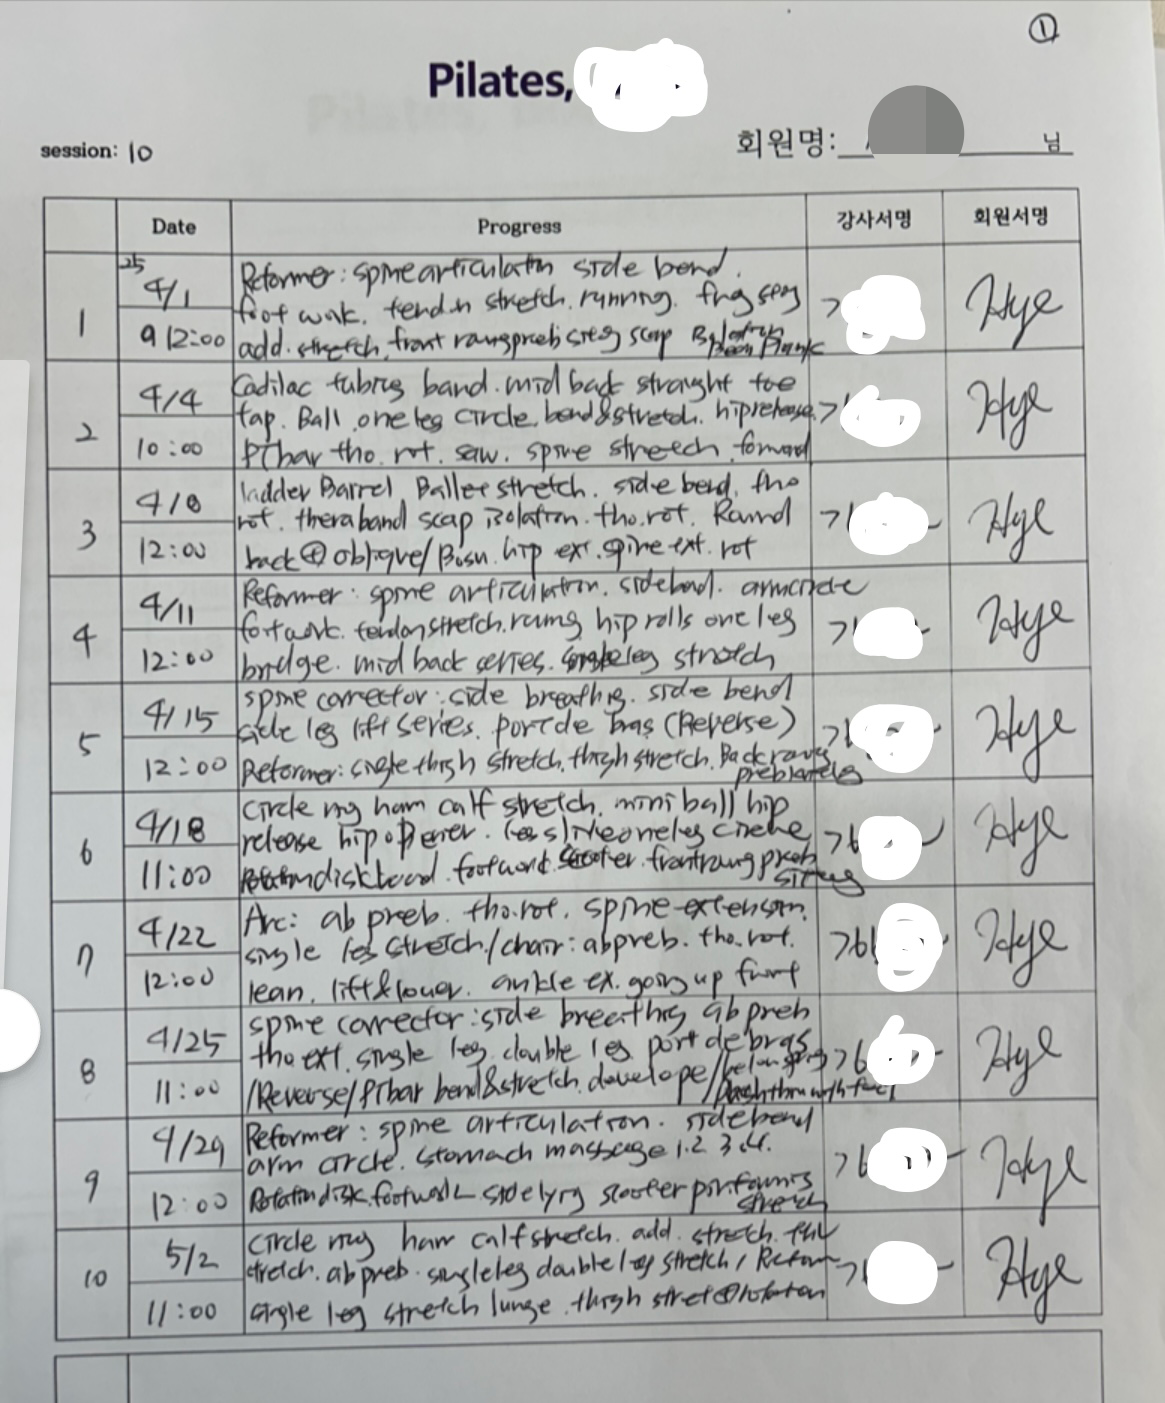 ①
Pilates,
session: 10
회원명: 님
Date Progress 강사서명 회원서명
1
25
4/1
12:00
Reformer: spine articulation side bend.
foot work. tendon stretch. running.
add. stretch, front
Hye
2
4/4
10:00
Cadilac tubing band. mid back straight toe
tap. Ball one leg circle. bend&stretch. hip release.
tho. rot. saw. spine stretch forward
Hye
3
4/8
12:00
ladder Barrel Ballet stretch. side bend. tho
rot. theraband scap isolation. tho. rot. Round
back oblique/Bosu. hip ext. spine ext. rot
Hye
4
4/11
12:00
Reformer: spine articulation. sidebend. armcircle
footwork. tendon stretch. hip rolls one leg
bridge. mid back series. single leg stretch
Hye
5
4/15
12:00
spine corrector: side breathig. side bend
side leg lift series. port de bras (Reverse)
Reformer: single thigh stretch. thigh stretch. Back
Hye
6
4/18
11:00
circle ring ham calf stretch. mini ball hip
release hip opener.
disk footwork. scooter.
Hye
7
4/22
12:00
Arc: ab preb. tho. rot. spine extension.
single leg stretch/chair: abpreb. tho. rot.
lean. lift&lower. ankle ex. going up front
Hye
8
4/25
11:00
spine corrector: side breathig ab preb
tho ext. single leg. double leg port de bras
/Reverse/ bend&stretch. develope/
Hye
9
4/29
12:00
Reformer: spine articulation. sidebend
arm circle. stomach massage 1.2 3.4.
disk. footwork sidelying scooter piriformis
stretch
Hye
10
5/2
11:00
circle ring ham calf stretch. add. stretch.
stretch. ab preb. single leg double leg stretch/
single leg stretch lunge. thigh
Hye